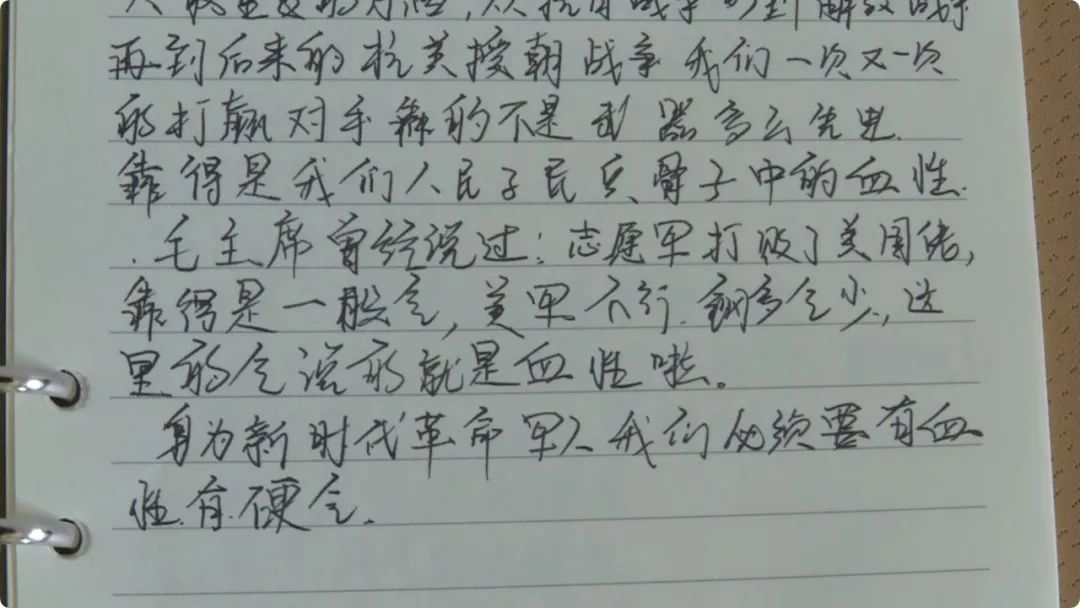 人最重要的方陪,从抗日战争到解放战争
再到后来的抗美援朝战争 我们一次又一次
的打赢对手靠的不是武器多么先进.
靠得是我们人民子民兵骨子中的血性.
毛主席曾经说过:志愿军打败了美国佬,
靠得是一股气,美军不行.钢多气少.,这
里的气说的就是血性啦。
身为新时代革命军人我们必须要有血
性.有.硬气.